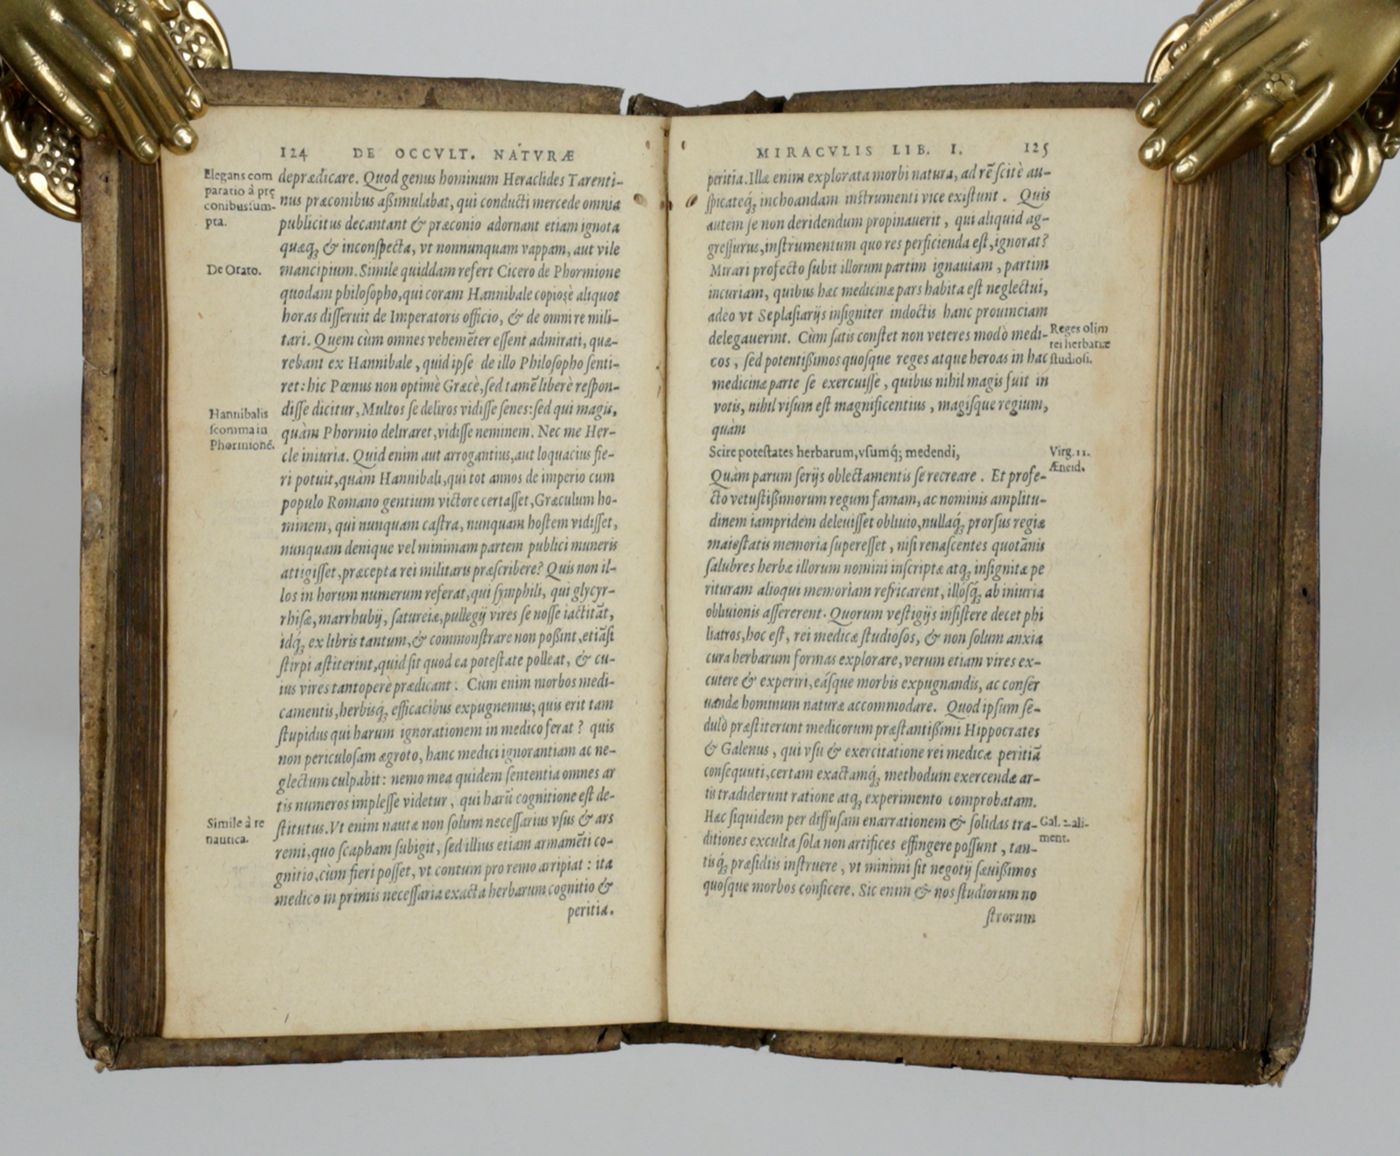 124 DE OCCVLT. NATVRÆ
Elegans com
paratio à prę
conibus sum-
pta.
deprædicare. Quod genus hominum Heraclides Tarenti-
nus præconibus aßimulabat, qui conducti mercede omnia
publicitus decantant & præconio adornant etiam ignota
quæq́; & inconspecta, vt nonnunquam vappam, aut vile
De Orato.
mancipium. Simile quiddam refert Cicero de Phormione
quodam philosopho, qui coram Hannibale copiosè aliquot
horas disseruit de Imperatoris officio, & de omni re mili-
tari. Quem cùm omnes vehemẽter essent admirati, quæ-
rebant ex Hannibale, quid ipse de illo Philosopho senti-
ret: hic Pœnus non optimè Græcè, sed tamẽ liberè respon-
Hannibalis
scomma in
Phormionẽ.
disse dicitur, Multos se deliros vidisse senes: sed qui magis,
quàm Phormio deliraret, vidisse neminem. Nec me Her-
cle iniuria. Quid enim aut arrogantius, aut loquacius fie-
ri potuit, quàm Hannibali, qui tot annos de imperio cum
populo Romano gentium victore certasset, Græculum ho-
minem, qui nunquam castra, nunquam hostem vidisset,
nunquam denique vel minimam partem publici muneris
attigisset, præcepta rei militaris præscribere? Quis non il-
los in horum numerum referat, qui symphiti, qui glycyr-
rhisæ, marrhubij, satureiæ, pullegij vires se nosse iactitãt,
idq́; ex libris tantum, & commonstrare non possint, etiãsi
stirpi astiterint, quid sit quod ea potestate polleat, & cu-
ius vires tantoperè prædicant. Cum enim morbos medi-
camentis, herbisq́; efficacibus expugnemus; quis erit tam
stupidus qui harum ignorationem in medico ferat? quis
non periculosam ægroto, hanc medici ignorantiam ac ne-
glectum culpabit: nemo mea quidem sententia omnes ar
tis numeros implesse videtur, qui harũ cognitione est de-
Simile à re
nautica.
stitutus. Vt enim nautæ non solum necessarius vsus & ars
remi, quo scapham subigit, sed illius etiam armamẽti co-
gnitio, cùm fieri posset, vt contum pro remo arripiat: ita
medico in primis necessaria exacta herbarum cognitio &
peritia.
MIRACVLIS LIB. I. 125
peritia. Illæ enim explorata morbi natura, ad rẽ scitè au-
spicateq́; inchoandam instrumenti vice existunt. Quis
autem se non deridendum propinauerit, qui aliquid ag-
gressurus, instrumentum quo res perficienda est, ignorat?
Mirari profecto subit illorum partim ignauiam, partim
incuriam, quibus hæc medicinæ pars habita est neglectui,
adeo vt Seplasiarijs insigniter indoctis hanc prouinciam
delegauerint. Cùm satis constet non veteres modò medi-
Reges olim
rei herbariæ
studiosi.
cos, sed potentißimos quosque reges atque heroas in hac
medicinæ parte se exercuisse, quibus nihil magis fuit in
votis, nihil visum est magnificentius, magisque regium,
quàm
Scire potestates herbarum, vsumq́; medendi,
Virg. 11.
Æneid.
Quàm parum serijs oblectamentis se recreare. Et profe-
cto vetustißimorum regum famam, ac nominis amplitu-
dinem iampridem deleuisset obliuio, nullaq́; prorsus regiæ
maiestatis memoria superesset, nisi renascentes quotãnis
salubres herbæ illorum nomini inscriptæ atq́; insignitæ pe
rituram alioqui memoriam refricarent, illosq́; ab iniuria
obliuionis assererent. Quorum vestigijs insistere decet phi
liatros, hoc est, rei medicæ studiosos, & non solum anxia
cura herbarum formas explorare, verum etiam vires ex-
cutere & experiri, eásque morbis expugnandis, ac conser
uandæ hominum naturæ accommodare. Quod ipsum se-
dulò præstiterunt medicorum præstantißimi Hippocrates
& Galenus, qui vsu & exercitatione rei medicæ peritiã
consequuti, certam exactamq́; methodum exercendæ ar-
tis tradiderunt ratione atq́; experimento comprobatam.
Hæc siquidem per diffusam enarrationem & solidas tra-
Gal. 2. ali-
ment.
ditiones exculta sola non artifices effingere possunt, tan-
tisq́; præsidiis instruere, vt minimi sit negotij sæuißimos
quosque morbos conficere. Sic enim & nos studiorum no
strorum